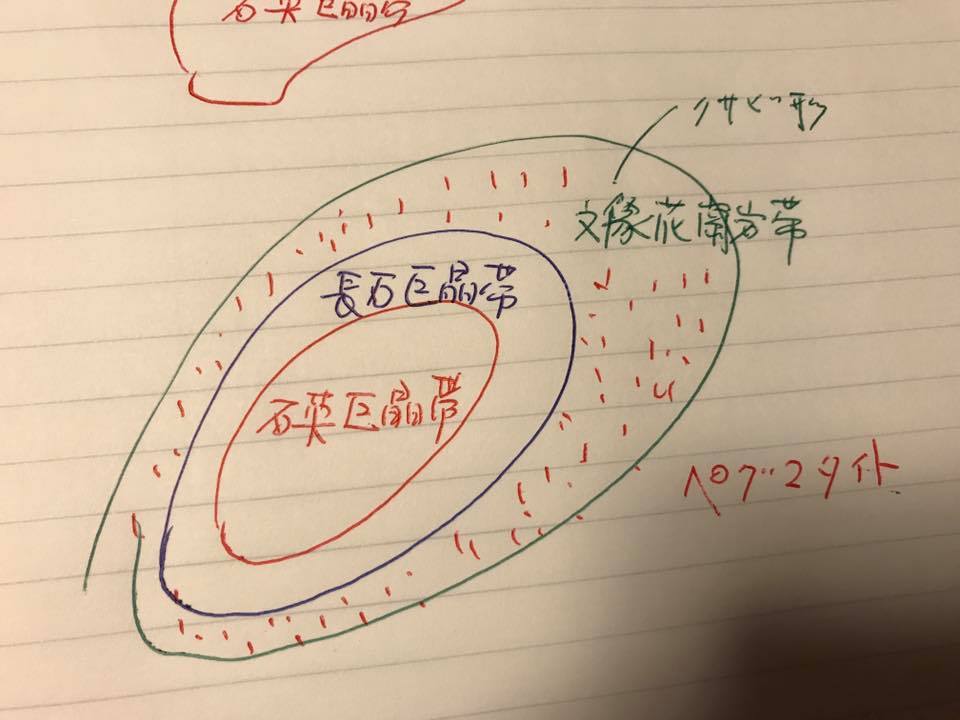 石英巨晶帯
クサビ形
文象花崗岩帯
長石巨晶帯
石英巨晶帯
ペグマタイト